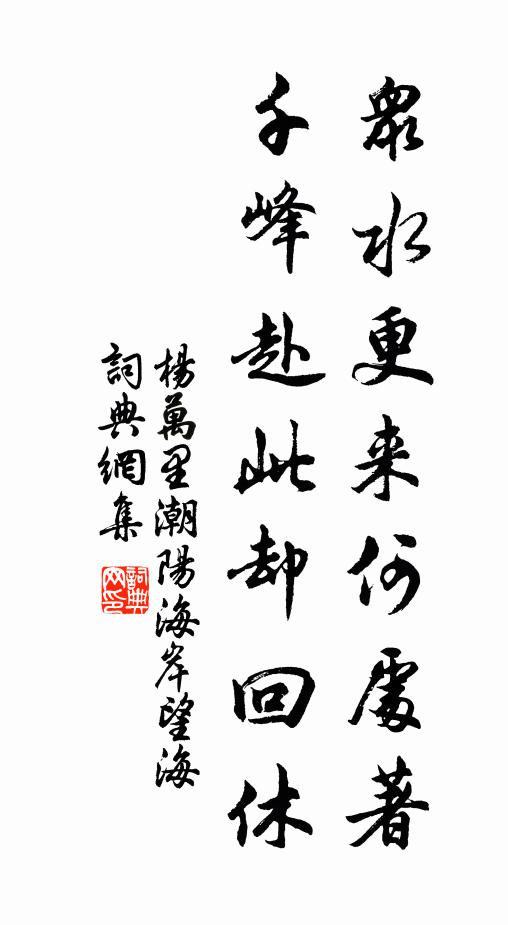 眾水更来何處著
千峰赴此却回休
楊萬里潮陽海岸望海
詞典網集
詞典網印